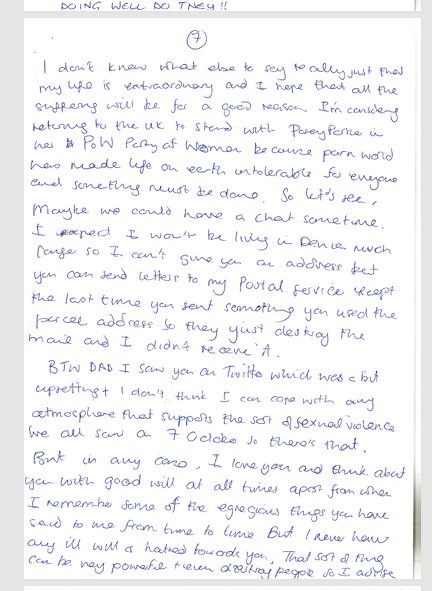 DOING WELL DO THEY!!
7
I don't know what else to say really, just that
my life is extraordinary and I hope that all the
suffering will be for a good reason. I'm considering
returning to the UK to stand with Posey Parker in
her PoW Party of Women because porn world
has made life on earth intolerable for everyone
and something must be done. So let's see,
Maybe we could have a chat sometime.
I expect I won't be living in Denia much
longer so I can't give you an address but
you can send letters to my Postal service except
the last time you sent something you used the
parcel address so they just destroy the
mail and I didn't receive it.
BTW DAD I saw you on Twitter which was a bit
upsetting + I don't think I can cope with any
atmosphere that supports the sort of sexual violence
we all saw on 7 October so there's that.
But in any case, I love you and think about
you with good will at all times apart from when
I remember some of the egregious things you have
said to me from time to time But I never have
any ill will or hatred towards you, That sort of thing
can be very powerful + even destroy people so I advise